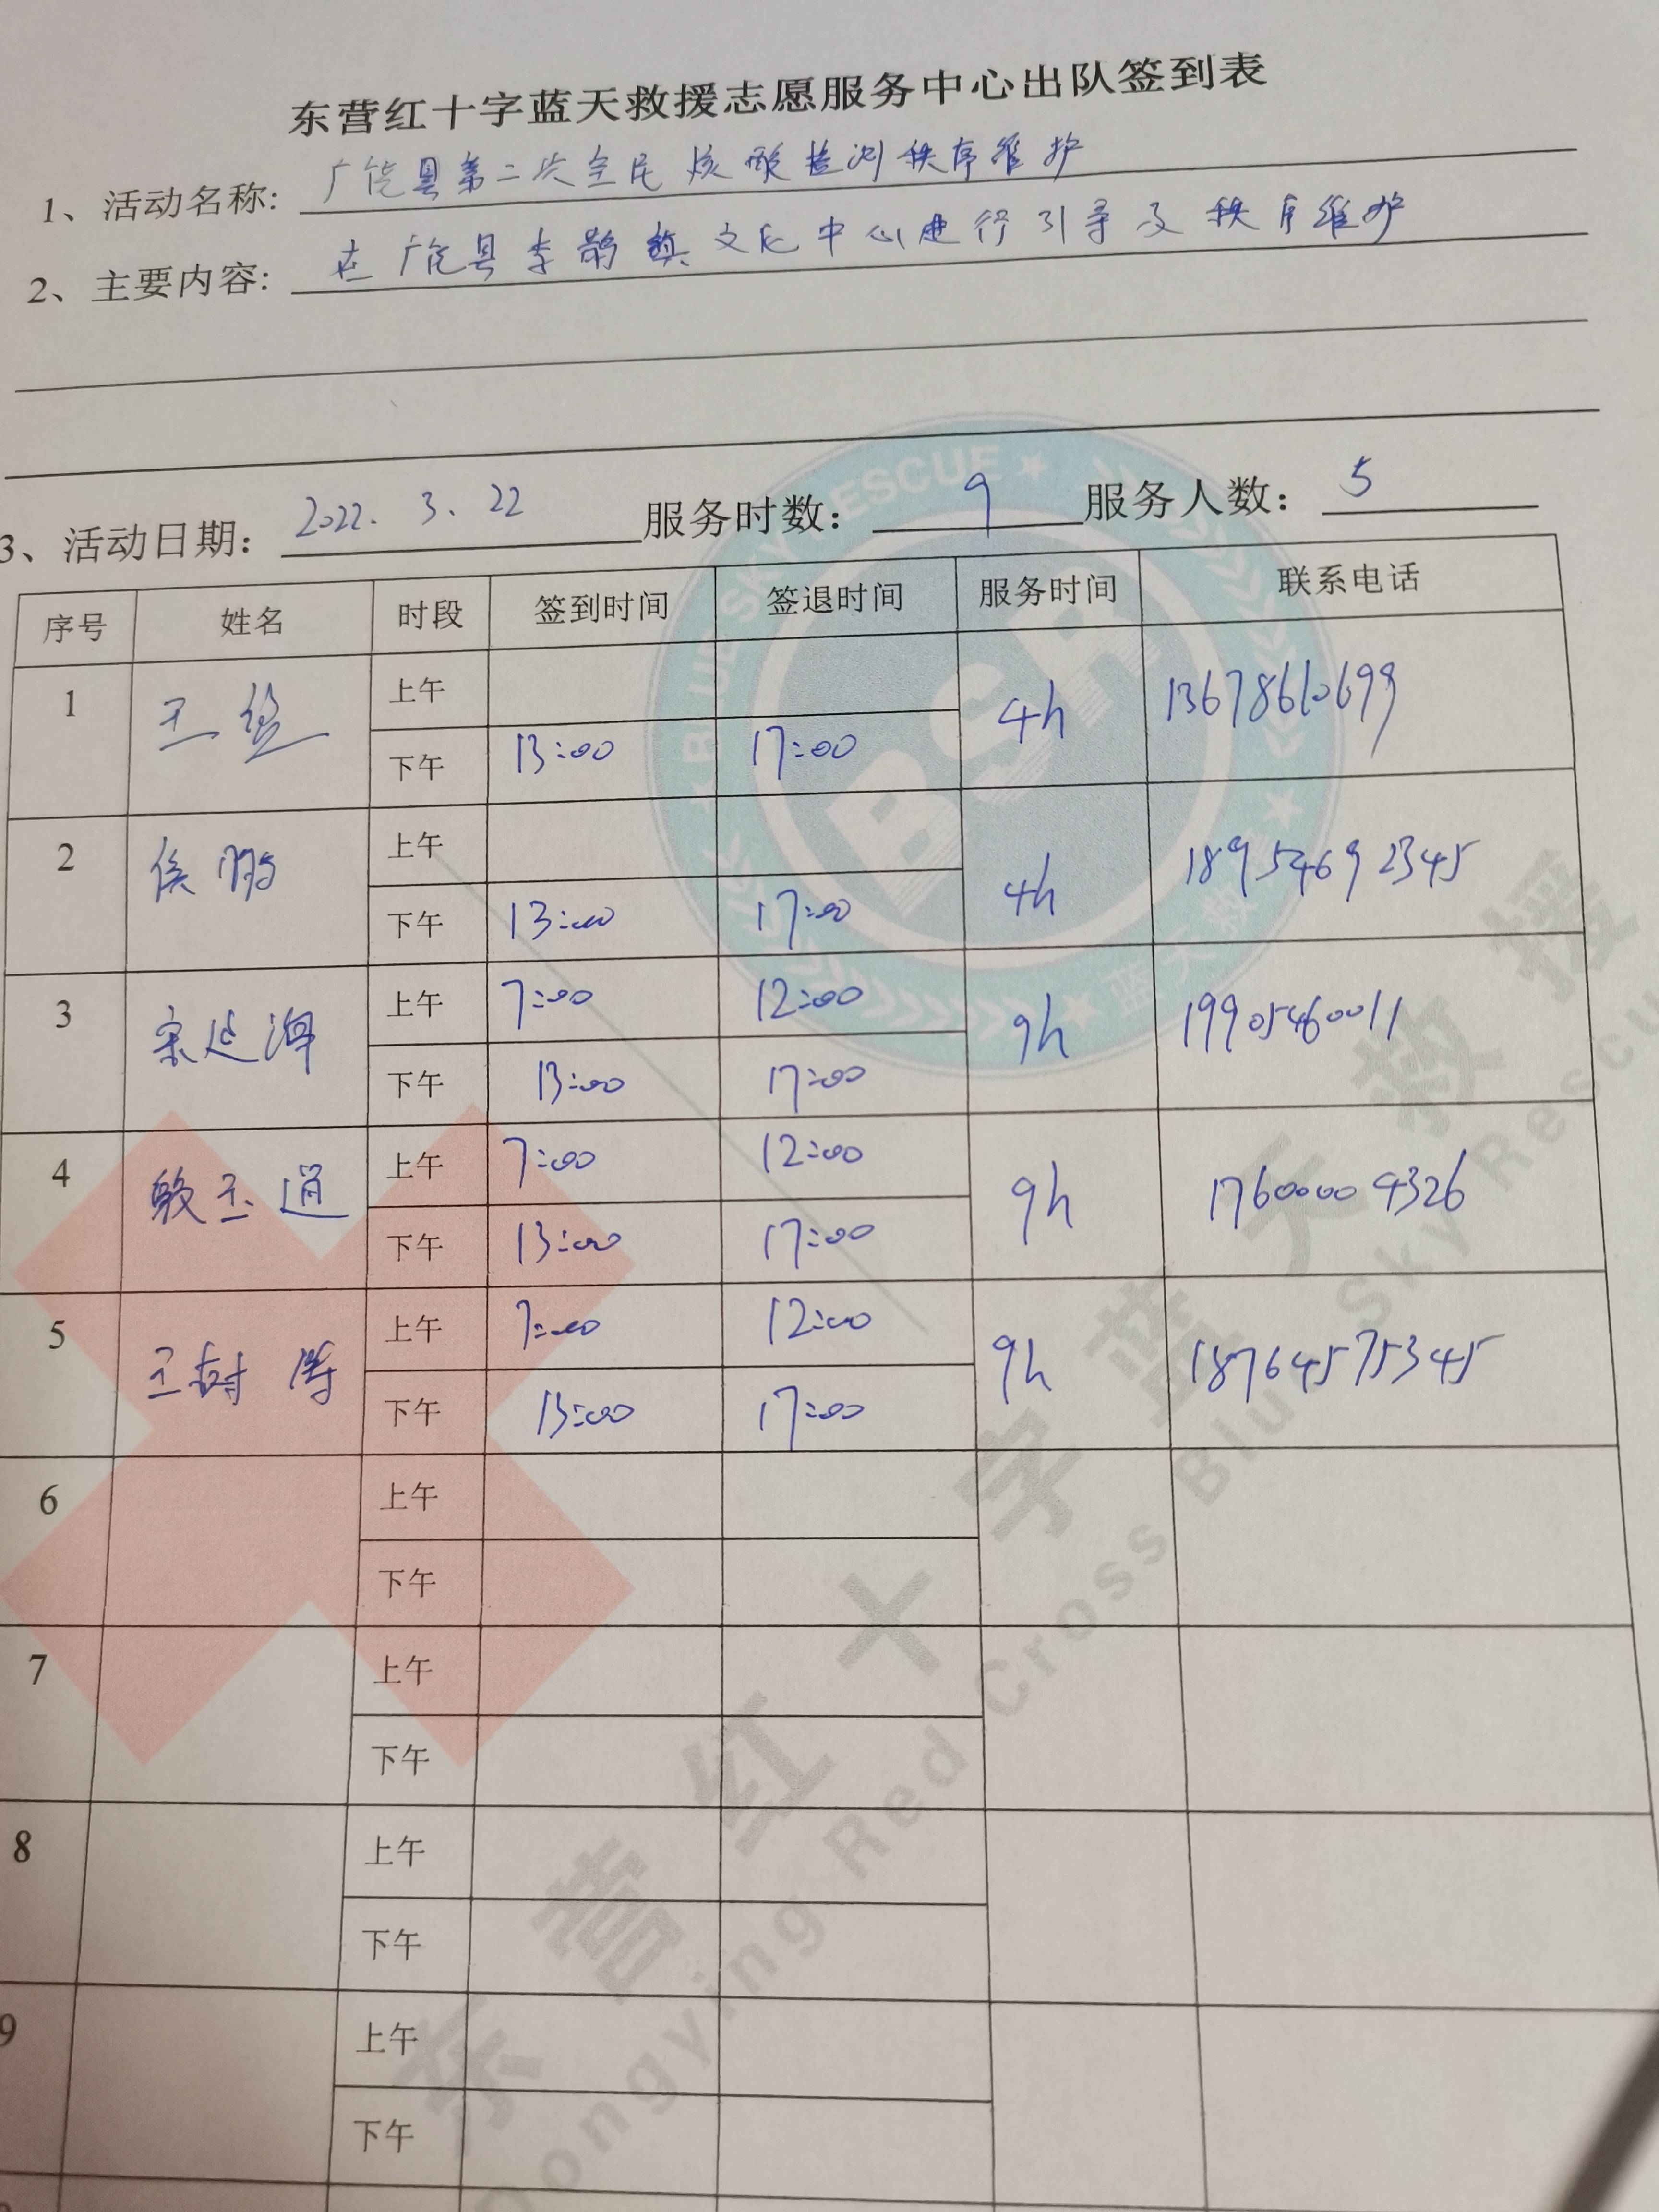 东营红十字蓝天救援志愿服务中心出队签到表
1、活动名称: 广饶县第二次全民核酸检测秩序维护
2、主要内容: 在广饶县李鹊镇文化中心进行引导及秩序维护
3、活动日期: 2022.3.22 服务时数: 9 服务人数: 5
序号 姓名 时段 签到时间 签退时间 服务时间 联系电话
1 王 上午 4h 13678610699
下午 13:00 17:00
2 侯鹏 上午 4h 18954692345
下午 13:00 17:00
3 宋延海 上午 7:00 12:00 9h 19905460011
下午 13:00 17:00
4 玉通 上午 7:00 12:00 9h 17600004326
下午 13:00 17:00
5 王树涛 上午 7:00 12:00 9h 18764575345
下午 13:00 17:00
6 上午
下午
7 上午
下午
8 上午
下午
9 上午
下午
BLUE SKY RESCUE
BSR
蓝天救援
东营红十字蓝天救援
Dongying Red Cross Blue Sky Rescue